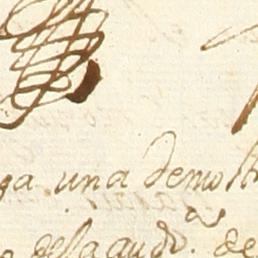 ga una demost
de la aud.ª de